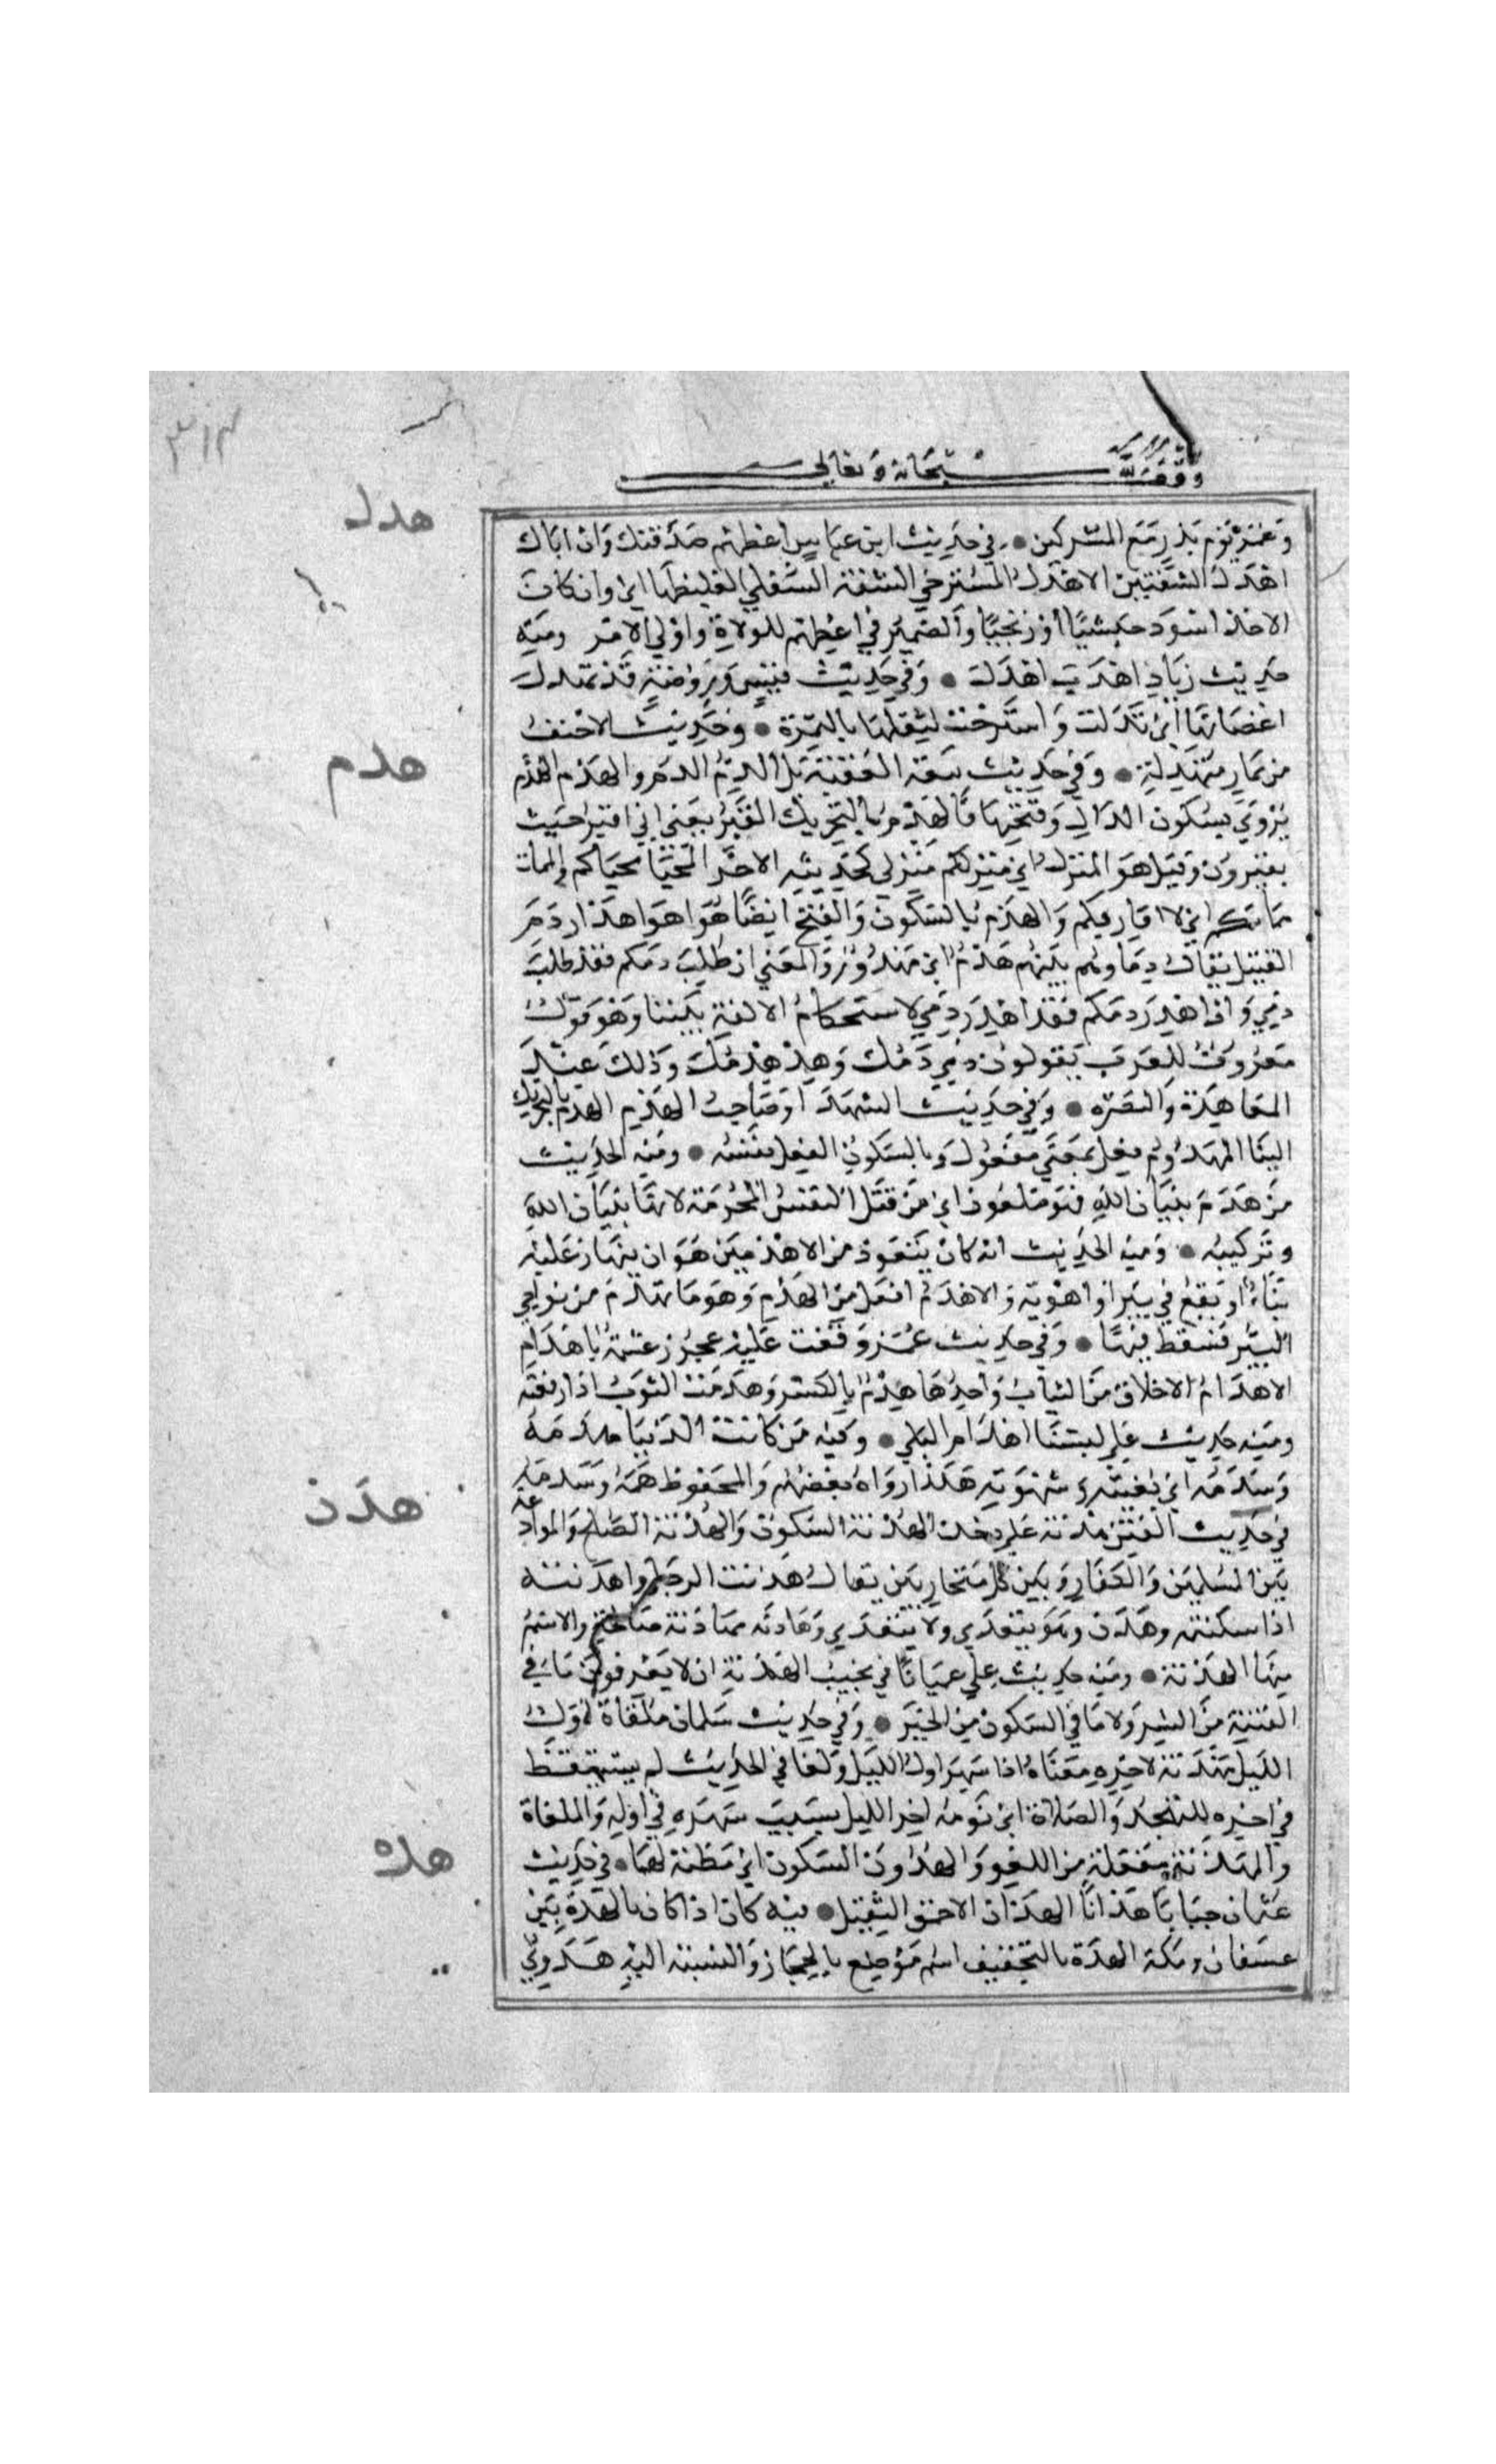 ٣١٣
وقف لله سبحانه وتعالى
هدل
وعمر يوم بدر مع المشركين • في حديث ابن عباس اعطهم صدقتك وان اتاك
اهدل الشفتين الاهدل المسترخي الشفة السفلي الغليظها اي وان كان
الاخذ اسود حبشيا او زنجيا والضمير في اعطهم للولاة واولي الامر ومنه
حديث زياد اهدب اهدل • وفي حديث قس وروضة قد تهدل
اغصانها اي تدلت واسترخت لثقلها بالثمرة • وحديث الاحنف
هدم
من ثمار متهدلة • وفي حديث بيعة العقبة بل الدم الدم والهدم الهدم
يروي بسكون الدال وفتحها فالهدم بالتحريك القبر يعني اني اقبر حيث
يقبرون وقيل هو المنزل اي منزلكم منزلي كحديثه الاخر المحيا محياكم والممات
مماتكم اي لا افارقكم والهدم بالسكون والفتح ايضا هو اهدار دم
القتيل يقال دماوهم بينهم هدم اي مهدورة والمعني ان طلب دمكم فقد طلب
دمي وان اهدر دمكم فقد اهدر دمي لاستحكام الالفة بيننا وهو قول
معروف للعرب يقولون دمي دمك وهدمي هدمك وذلك عند
المعاهدة والنصرة • وفي حديث الشهدا وصاحب الهدم الهدم بالتحريك
البنا المهدوم فعل بمعني مفعول وبالسكون الفعل نفسه • ومنه الحديث
من هدم بنيان الله فهو ملعون اي من قتل النفس المحرمة لانها بنيان الله
وتركيبه • ومنه الحديث انه كان يتعوذ من الاهدمين هو ان ينهار عليه
بناء او يقع في بير او اهوية والاهدم افعل من الهدم وهو ما تهدم من نواحي
البير فسقط فيها • وفي حديث عمر وقفت عليه عجوز عشمة باهدام
الاهدام الاخلاق من الثياب واحدها هدم بالكسر وهدمت الثوب اذا رقعته
ومنه حديث علي لبسنا اهدام البلي • وفيه من كانت الدنيا هدمه
وسدمه اي بغيته وشهوته هكذا رواه بعضهم والمحفوظ همه وسدمه
هدن
في حديث الفتن هدنة علي دخن الهدنة السكون والهدنة الصلح والموادعة
بين المسلمين والكفار وبين كل متحاربين يقال هدنت الرجل واهدنته
اذا سكنته وهدن وهو يتعدي ولا يتعدي وهادنه مهادنة صالحه والاسم
منها الهدنة • ومنه حديث علي عميانا في غيب الهدنة اي لا يعرفون ما في
الفتنة من الشر ولا ما في السكون من الخير • وفي حديث سلمان ملغاة اول
الليل مهدنة لاخره معناه اذا سهر اول الليل ولغا في الحديث لم يستيقظ
في اخره للتهجد والصلاة اي نومه اخر الليل بسبب سهره في اوله والملغاة
والمهدنة مفعلة من اللغو والهدون السكون اي مظنة لهما • في حديث
هده
عثمان جبانا هدانا الهدان الاحمق الثقيل • فيه كان اذا كان بالهدة بين
عسفان ومكة الهدة بالتخفيف اسم موضع بالحجاز والنسبة اليه هدوي